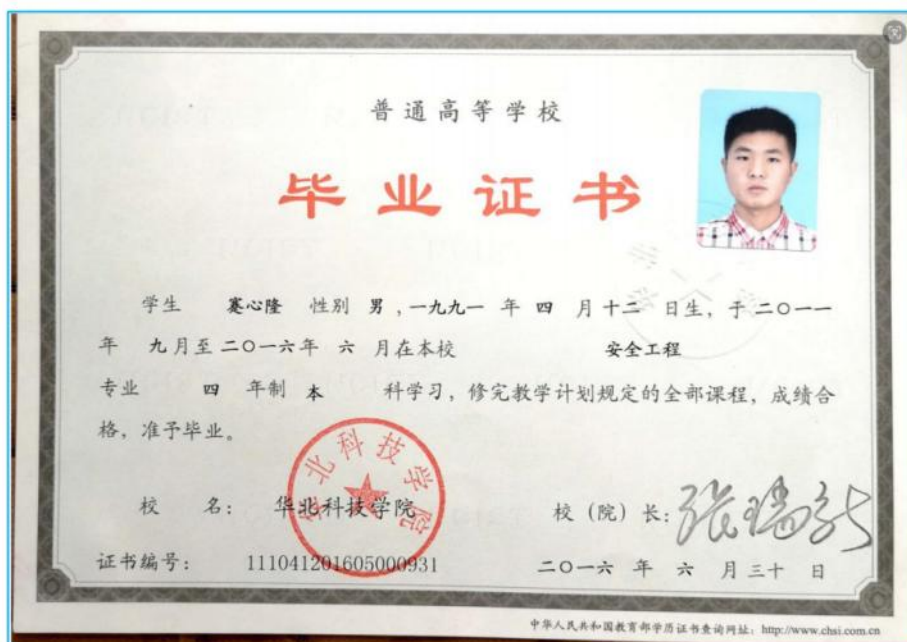 普通高等学校
毕业证书
学生 蹇心隆 性别 男 ，一九九一 年 四 月 十二 日生，于 二〇一一
年 九 月至 二〇一六 年 六 月在本校 安全工程
专业 四 年制 本 科学习，修完教学计划规定的全部课程，成绩合
格，准予毕业。
华北科技学院
校 名： 华北科技学院
校（院）长：
证书编号： 111041201605000931
二〇一六 年 六 月 三十 日
中华人民共和国教育部学历证书查询网址：http://www.chsi.com.cn